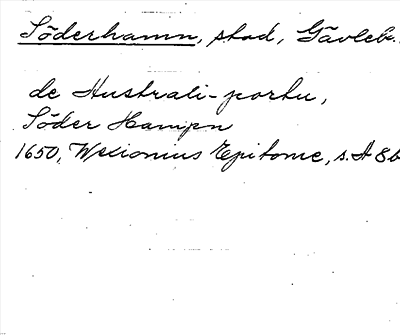 Söderhamn, stad, Gävleb.
de Hustrali-portu,
Söder Hampn
1650, Wexionius Epitome, s. A 8b